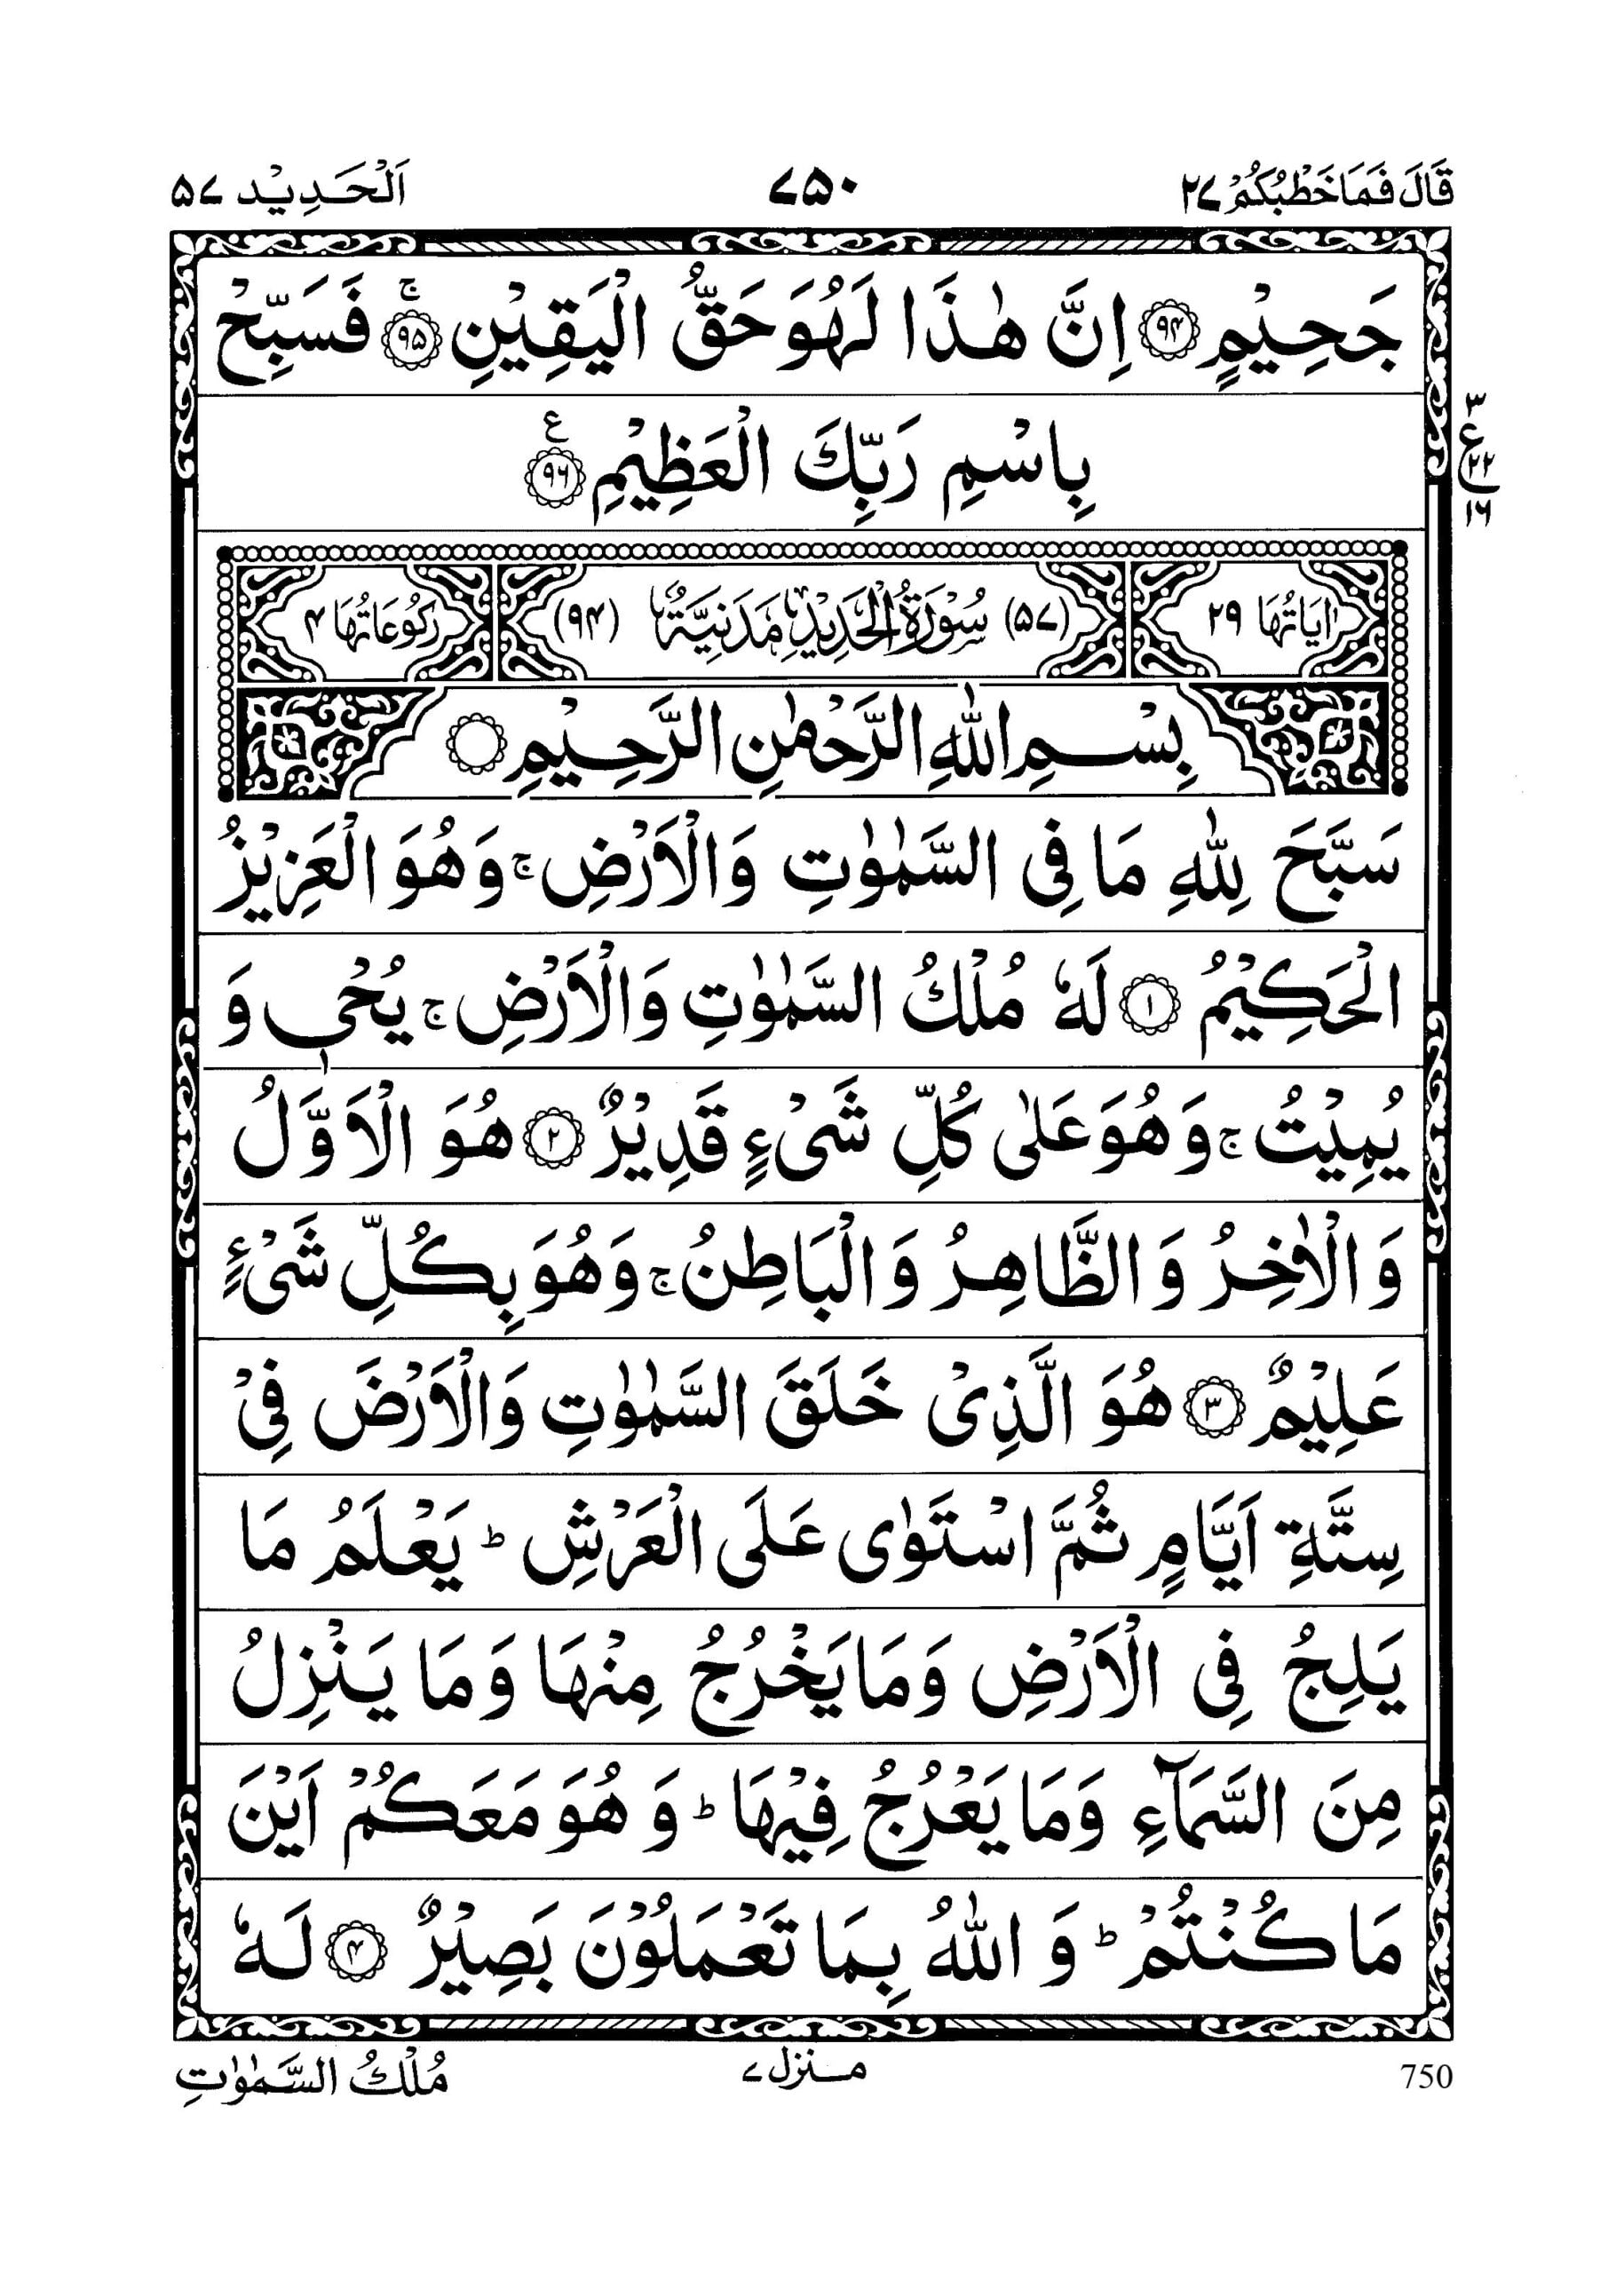 قَالَ فَمَا خَطْبُكُمْ ۲۷
۷۵۰
اَلْحَدِيْد ۵۷
جَحِيْمٍ ﴿۹۴﴾ اِنَّ هٰذَا لَهُوَ حَقُّ الْيَقِيْنِ ۚ﴿۹۵﴾ فَسَبِّحْ
بِاسْمِ رَبِّكَ الْعَظِيْمِ ﴿۹۶﴾ ع
۳
ع ۲۲
۱۶
اٰيَاتُهَا ۲۹
(۵۷) سُوْرَةُ الْحَدِيْدِ مَدَنِيَّةٌ (۹۴)
رُكُوْعَاتُهَا ۴
بِسْمِ اللّٰهِ الرَّحْمٰنِ الرَّحِيْمِ
سَبَّحَ لِلّٰهِ مَا فِى السَّمٰوٰتِ وَالْاَرْضِ ۚ وَهُوَ الْعَزِيْزُ
الْحَكِيْمُ ﴿۱﴾ لَهٗ مُلْكُ السَّمٰوٰتِ وَالْاَرْضِ ۚ يُحْىٖ وَ
يُمِيْتُ ۚ وَهُوَ عَلٰى كُلِّ شَىْءٍ قَدِيْرٌ ﴿۲﴾ هُوَ الْاَوَّلُ
وَالْاٰخِرُ وَالظَّاهِرُ وَالْبَاطِنُ ۚ وَهُوَ بِكُلِّ شَىْءٍ
عَلِيْمٌ ﴿۳﴾ هُوَ الَّذِىْ خَلَقَ السَّمٰوٰتِ وَالْاَرْضَ فِىْ
سِتَّةِ اَيَّامٍ ثُمَّ اسْتَوٰى عَلَى الْعَرْشِ ؕ يَعْلَمُ مَا
يَلِجُ فِى الْاَرْضِ وَمَا يَخْرُجُ مِنْهَا وَمَا يَنْزِلُ
مِنَ السَّمَآءِ وَمَا يَعْرُجُ فِيْهَا ؕ وَهُوَ مَعَكُمْ اَيْنَ
مَا كُنْتُمْ ؕ وَاللّٰهُ بِمَا تَعْمَلُوْنَ بَصِيْرٌ ﴿۴﴾ لَهٗ
750
منزل ۷
مُلْكُ السَّمٰوٰتِ